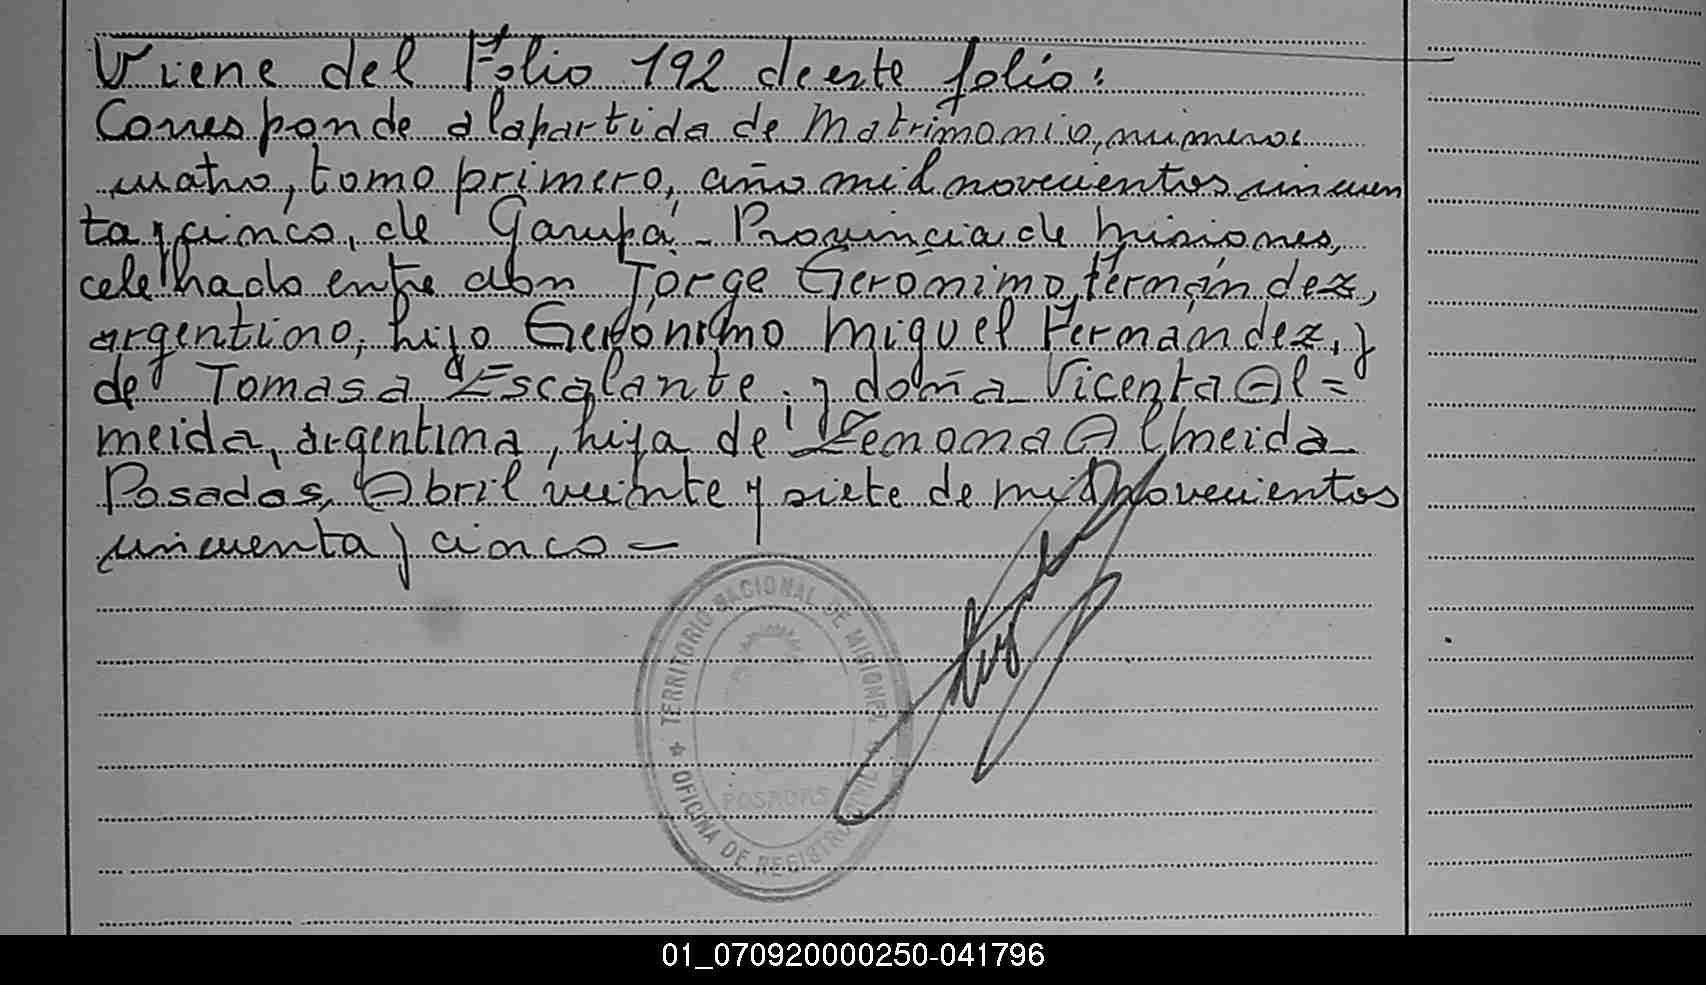 Viene del Folio 192 de este folio:
Corresponde a la partida de Matrimonio, numero
cuatro, tomo primero, año mil novecientos cincuen
ta y cinco, de Garupá - Provincia de Misiones,
celebrado entre don Jorge Gerónimo Fernández,
argentino, hijo Gerónimo Miguel Fernández, y
de Tomasa Escalante, y doña Vicenta Al=
meida, argentina, hija de Zenona Almeida
Posadas, Abril veinte y siete de mil novecientos
cincuenta y cinco -
TERRITORIO NACIONAL DE MISIONES
POSADAS
OFICINA DE REGISTRO CIVIL
01_070920000250-041796